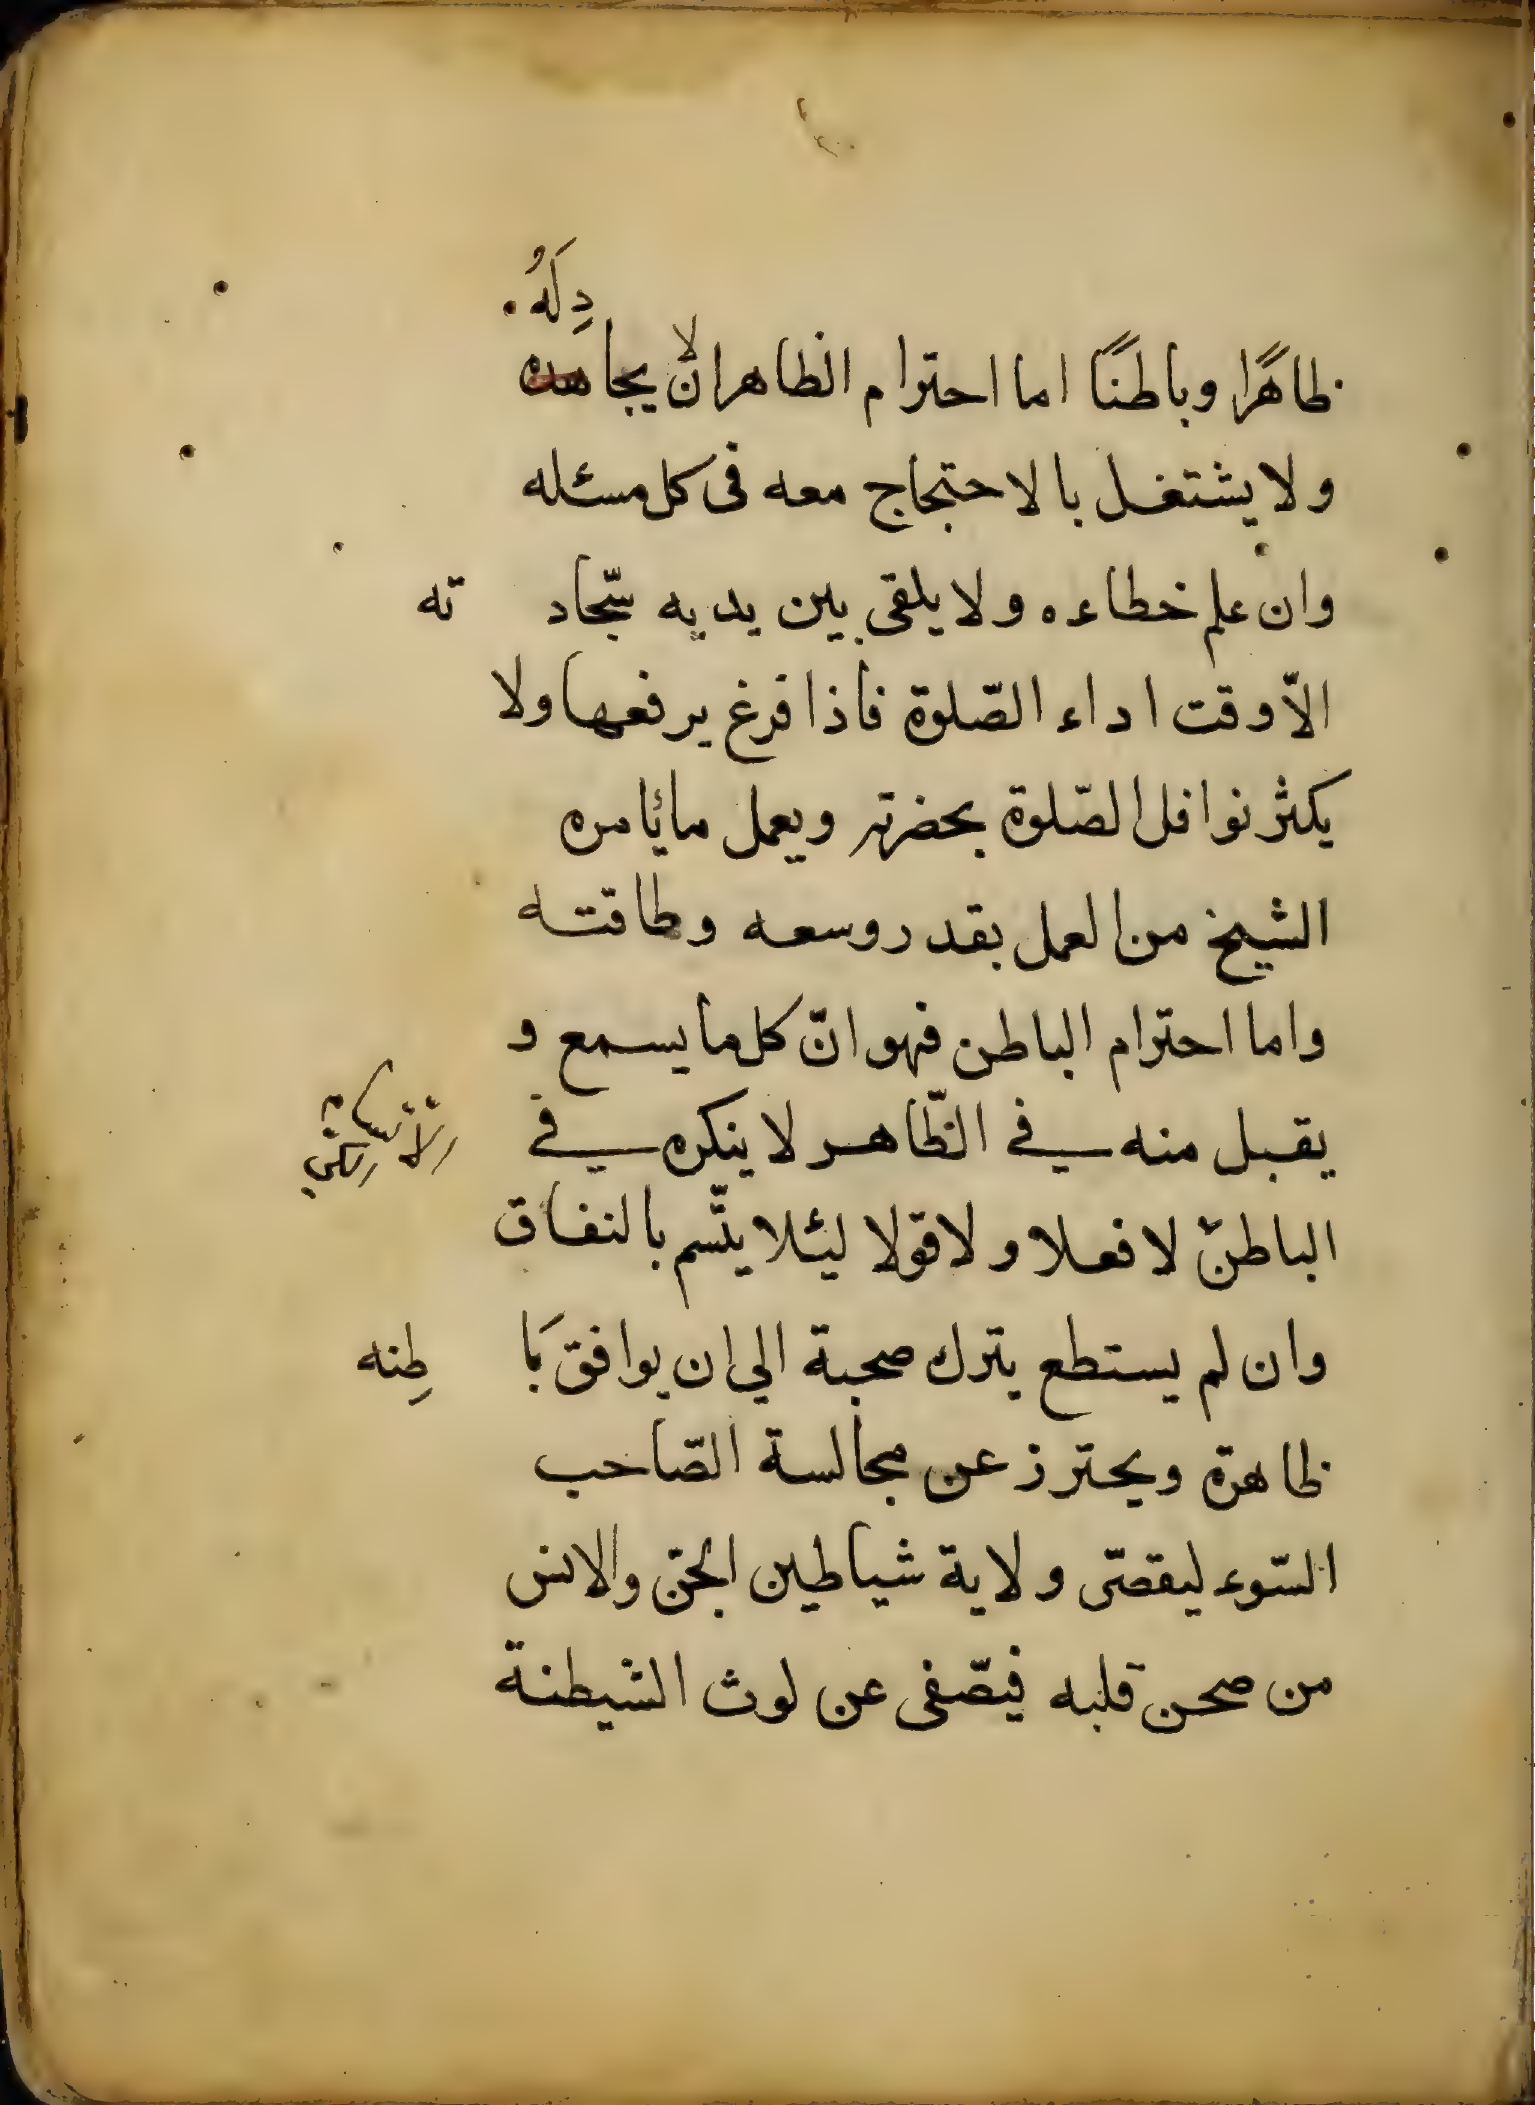 دِلَهُ
ظاهرًا وباطنًا اما احترام الظاهر ان لا يجاهده
ولا يشتغل بالاحتجاج معه فى كل مسئله
وان علم خطاءه ولا يلقى بين يديه سجّادته
الّا وقت اداء الصّلوة فاذا فرغ يرفعها ولا
يكثر نوافل الصّلوة بحضرته ويعمل ما يأمره
الشيخ من العمل بقدر وسعه وطاقته
واما احترام الباطن فهو انّ كل ما يسمع و
يقبل منه في الظّاهر لا ينكره في
الباطن لا فعلا ولا قولا ليئلا يتّسم بالنفاق
وان لم يستطع يترك صحبة الى ان يوافق بَاطِنه
ظاهرة ويحترز عن مجالسة الصّاحب
السّوء ليقصّى ولاية شياطين الجنّ والانس
من صحن قلبه فيصّفى عن لوث الشيطنة